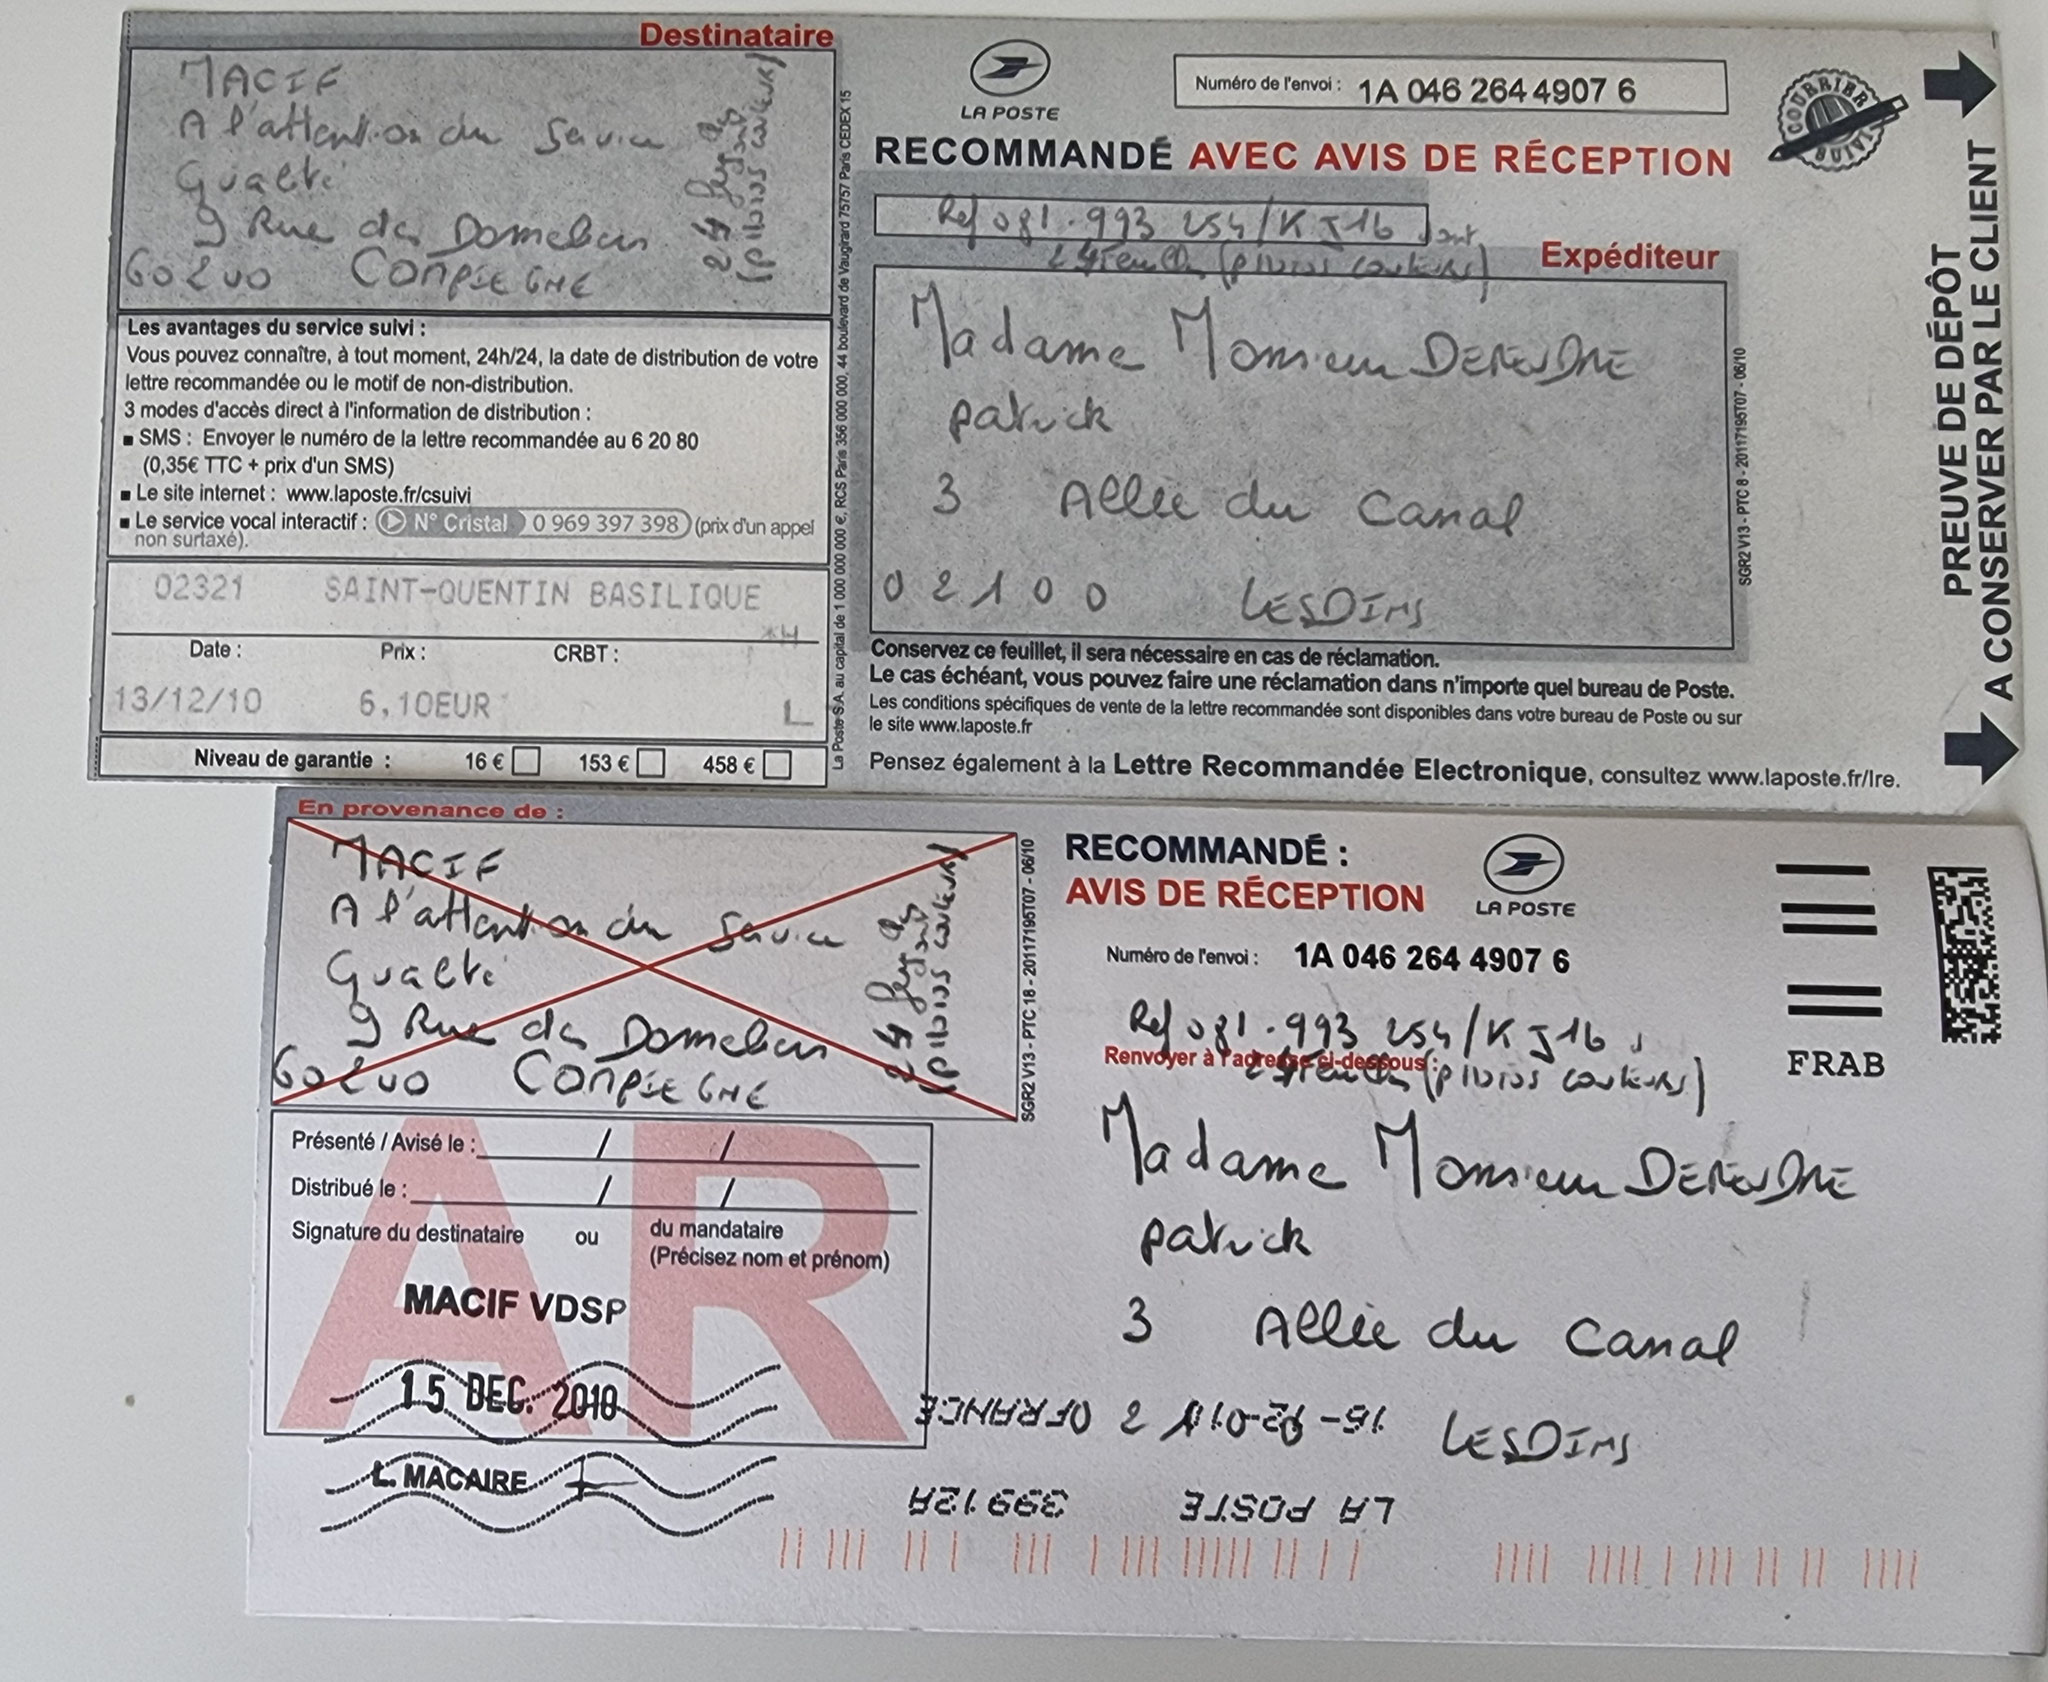 Destinataire
MACIF
A l'attention du Service
Qualité
9 Rue des Domeliers
60200 COMPIEGNE
24 feuilles
(photos couleurs)
Les avantages du service suivi :
Vous pouvez connaître, à tout moment, 24h/24, la date de distribution de votre
lettre recommandée ou le motif de non-distribution.
3 modes d'accès direct à l'information de distribution :
■ SMS : Envoyer le numéro de la lettre recommandée au 6 20 80
(0,35€ TTC + prix d'un SMS)
■ Le site internet : www.laposte.fr/csuivi
■ Le service vocal interactif : N° Cristal 0 969 397 398 (prix d'un appel
non surtaxé).
02321 SAINT-QUENTIN BASILIQUE
Date : Prix : CRBT :
13/12/10 6,10EUR L
Niveau de garantie : 16 € 153 € 458 €
La Poste S.A. au capital de 1 000 000 000 €, RCS Paris 356 000 000, 44 boulevard de Vaugirard 75757 Paris CEDEX 15
LA POSTE
Numéro de l'envoi : 1A 046 264 4907 6
COURRIER SUIVI
RECOMMANDÉ AVEC AVIS DE RÉCEPTION
Ref 081.993 254/K J16 dont
(photos couleurs)
Expéditeur
Madame Monsieur
Patrick
3 Allée du Canal
02100 LESDINS
SGR2 V13 - PTC 8 - 20117195T07 - 06/10
Conservez ce feuillet, il sera nécessaire en cas de réclamation.
Le cas échéant, vous pouvez faire une réclamation dans n'importe quel bureau de Poste.
Les conditions spécifiques de vente de la lettre recommandée sont disponibles dans votre bureau de Poste ou sur
le site www.laposte.fr
Pensez également à la Lettre Recommandée Electronique, consultez www.laposte.fr/lre.
PREUVE DE DÉPÔT
A CONSERVER PAR LE CLIENT
En provenance de :
MACIF
A l'attention du Service
Qualité
9 Rue des Domeliers
60200 COMPIEGNE
24 feuilles
(photos couleurs)
SGR2 V13 - PTC 18 - 20117195T07 - 06/10
AR
Présenté / Avisé le : / /
Distribué le : / /
Signature du destinataire ou du mandataire
(Précisez nom et prénom)
MACIF VDSP
15 DEC. 2010
L. MACAIRE
RECOMMANDÉ :
AVIS DE RÉCEPTION
LA POSTE
Numéro de l'envoi : 1A 046 264 4907 6
Ref 081.993 254/K J16
Renvoyer à l'adresse ci-dessous :
(photos couleurs)
FRAB
Madame Monsieur
Patrick
3 Allée du Canal
LESDINS
15-12-10
FRANCE
LA POSTE 39912A